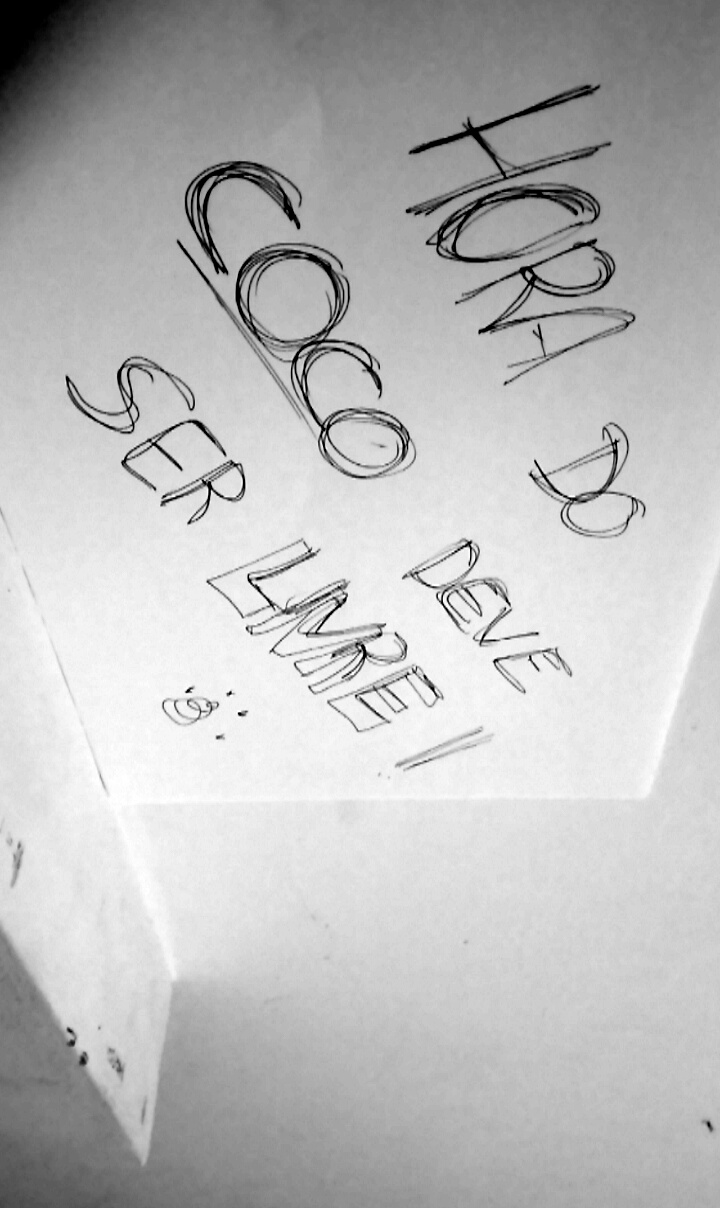 HORA DO
COCO DEVE
SER LIVRE!